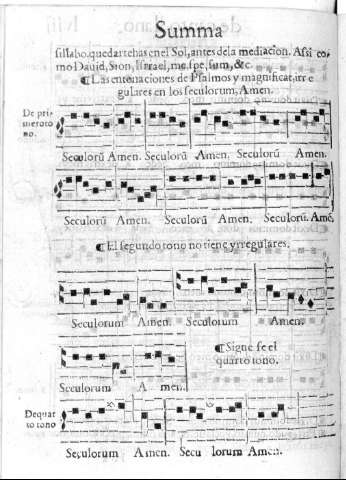 Summa
sillabo. quedar tehas en el Sol, antes dela mediacion. Assi co-
mo Dauid, Sion, Israel, me, spe, sum, &c.
¶ Las entonaciones de Psalmos y magnificat, irre
gulares en los seculorum, Amen.
De pri-
mero to
no.
Seculorũ Amen. Seculorũ Amen. Seculorũ Amen.
Seculorũ Amen. Seculorũ Amen. Seculorũ. Amẽ.
¶ El segundo tono no tiene yrregulares.
Seculorum Amen. Seculorum Amen.
¶ Sigue se el
quarto tono.
Seculorum Amen.
De quar
to tono
Seculorum Amen. Seculorum Amen.